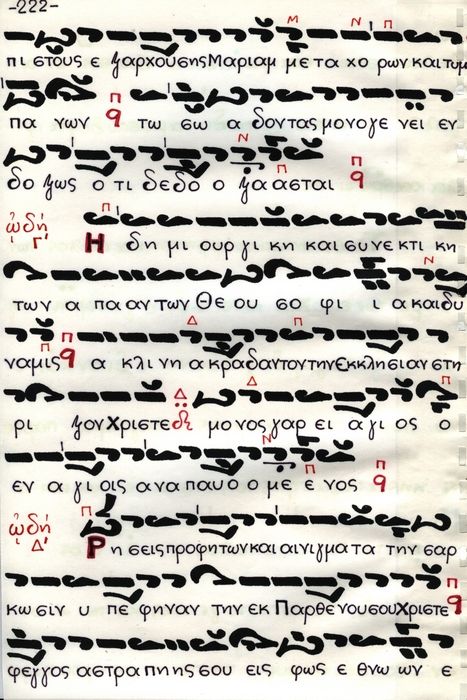 -222-
πι στους ε ξαρχουσηςΜαριαμ με τα χο ρων και τυμ
πα νων τω σω α δοντας μονογε νει εν
δο ξως ο τι δεδο ο ξα ασται
ᾠδή Γ΄ Η δη μι ουρ γι κη και συνε κτι κη
των α πα αν των Θε ου σο φι ι α και δυ
ναμις α κλι νη α κραδαντον την Εκκλησιαν στη
ρι ξον Χριστε μο νος γαρ ει α γι ος ο
εν α γι οις ανα παυ ο ο με ε νος
ᾠδή Δ΄ Ρη σεις προφητων και αινιγμα τα την σαρ
κω σιν υ πε φηναν την εκ Παρθε νου σου Χριστε
φεγγος αστρα πη ης σου εις φως ε θνω ων ε